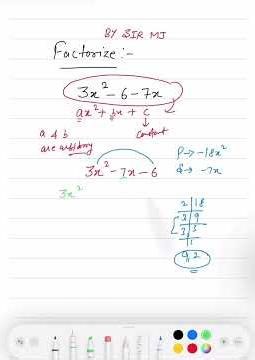 BY SIR MJ
Factorize :-
3x² - 6 - 7x
ax² + bx + c
a & b
constant
are arbitrary
3x² - 7x - 6
P → -18x²
→ -7x
3x²
2 | 18
3 | 9
3 | 3
1
9, 2